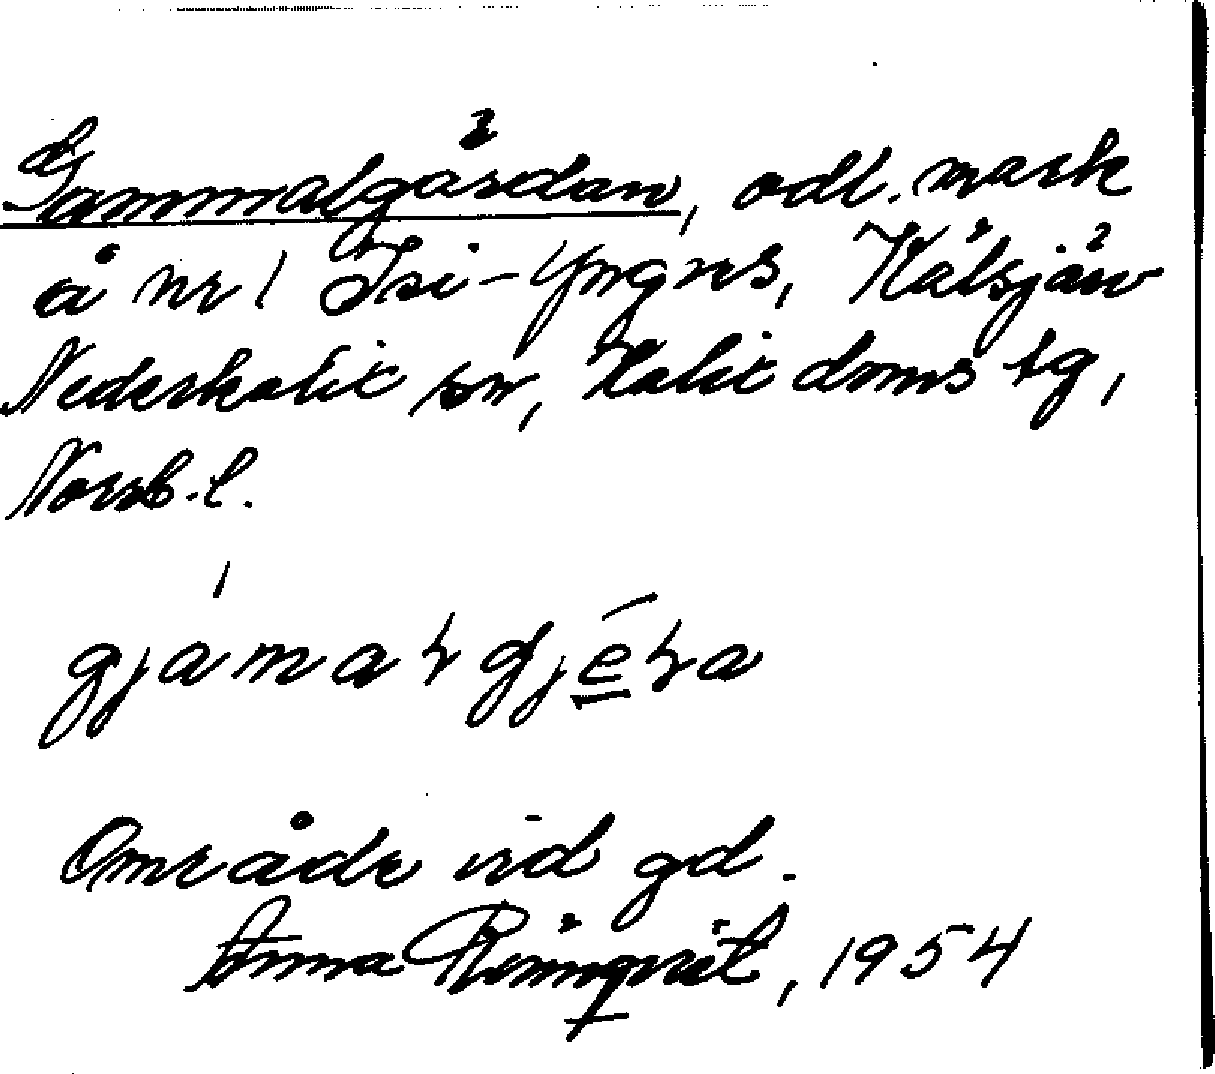 Gammalgårdan, odl. mark
å nr 1 Isi-Yngns, Kälsjärv
Nederkalix sn, Kalix doms tg,
Norrb. l.
gjámaɫgjéɫa
Område vid gd.
Anna Rönnqvist, 1954